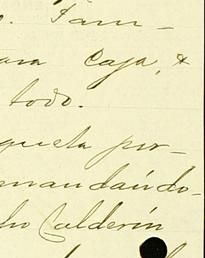 Tam-
para Caja, &
todo.
queta por-
mandándo-
cho Calderín